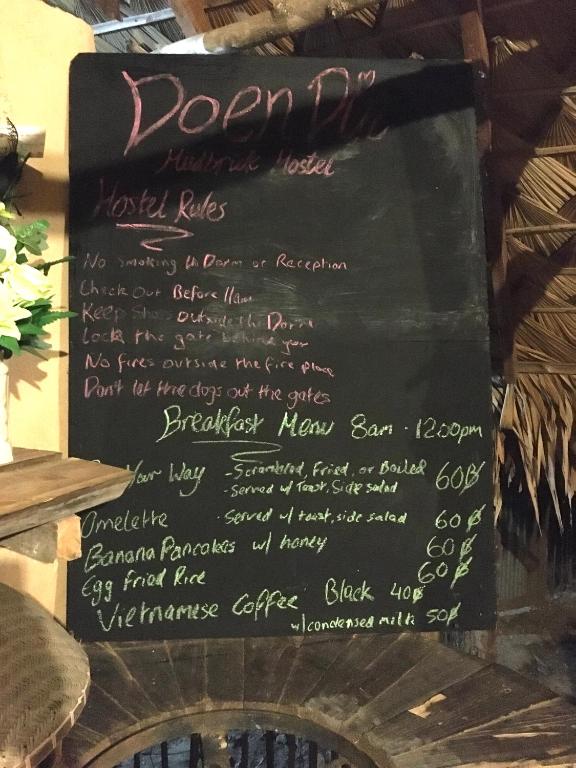 Doen Din
Mudbrick Hostel
Hostel Rules
No smoking in Dorm or Reception
Check Out Before 11am
Keep Shoes outside the Dorm
Lock the gate behind you
No fires outside the fire place
Don't let the dogs out the gates
Breakfast Menu 8am - 12:00pm
Your Way - Scrambled, Fried, or Boiled 60฿
- Served w/ Toast, Side salad
Omelette - Served w/ toast, side salad 60฿
Banana Pancakes w/ honey 60฿
Egg Fried Rice 60฿
Vietnamese Coffee Black 40฿
w/ condensed milk 50฿